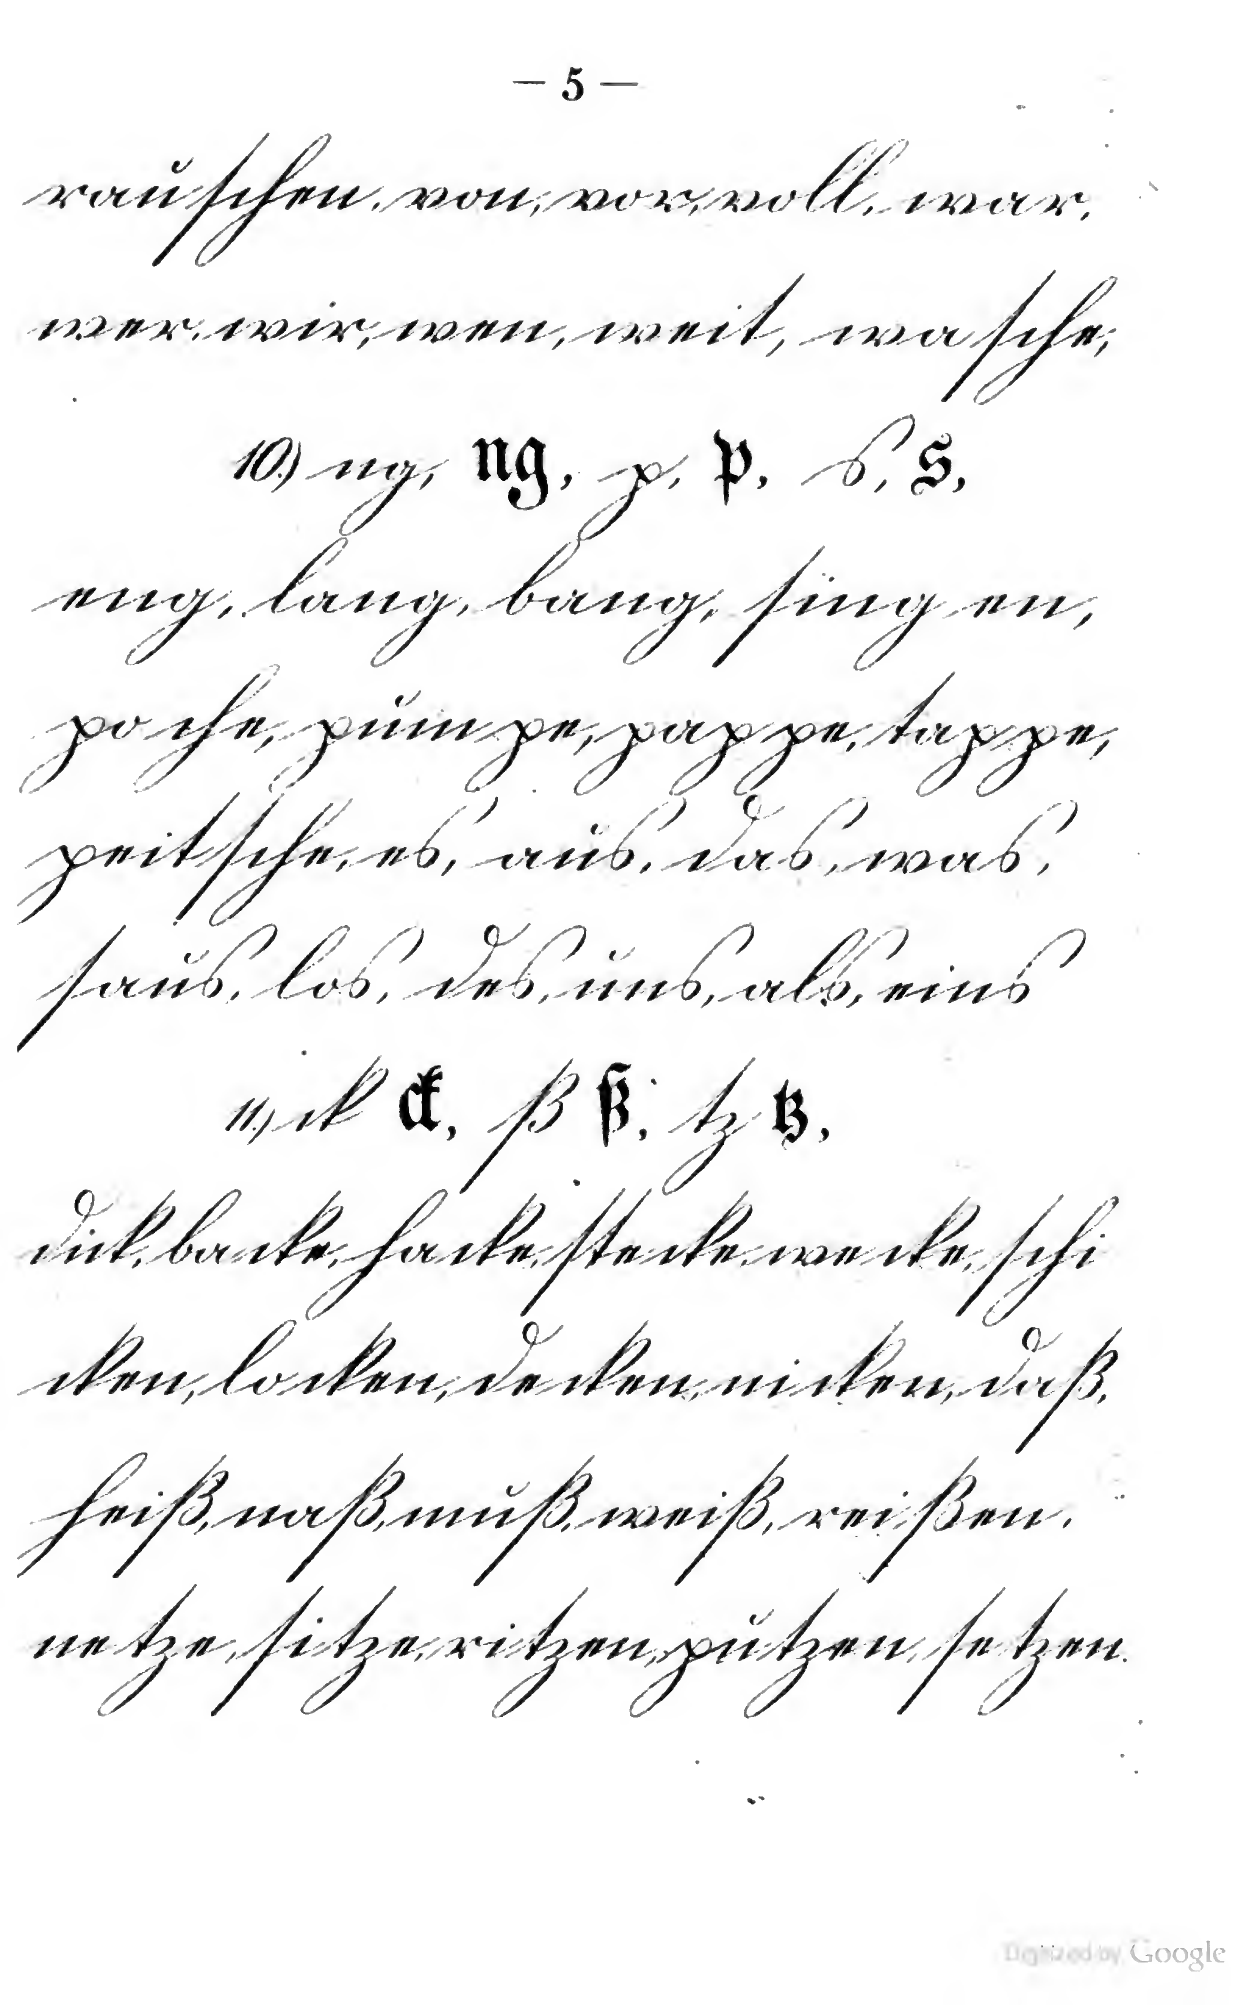 — 5 —
rauschen, von, vor, voll, war,
wer, wir, wen, weit, wasche,
10.) ng, ng, p, p, s, s,
eng, lang, bang, singen,
poche, pumpe, pappe, tappe,
peitsche, es, aus, das, was,
saus, los, des, uns, als, eins
11.) ck ck, ß ß, tz tz,
dick, backe, hacke, stecke, wecke, schi
cken, locken, decken, nicken, daß,
heiß, naß, muß, weiß, reißen,
netze, sitze, ritzen, putzen, setzen.
Digitized by Google